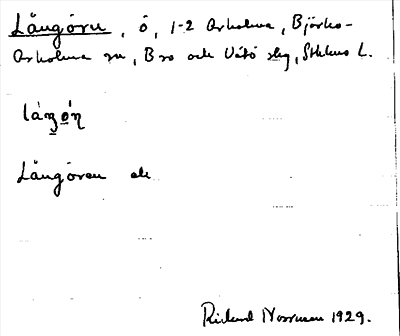 Långörn, ö, 1-2 Arholma, Björkö-
Arholma sn, Bro och Vätö skg, Sthlms L.
Långören ek
Rickard Norrman 1929.